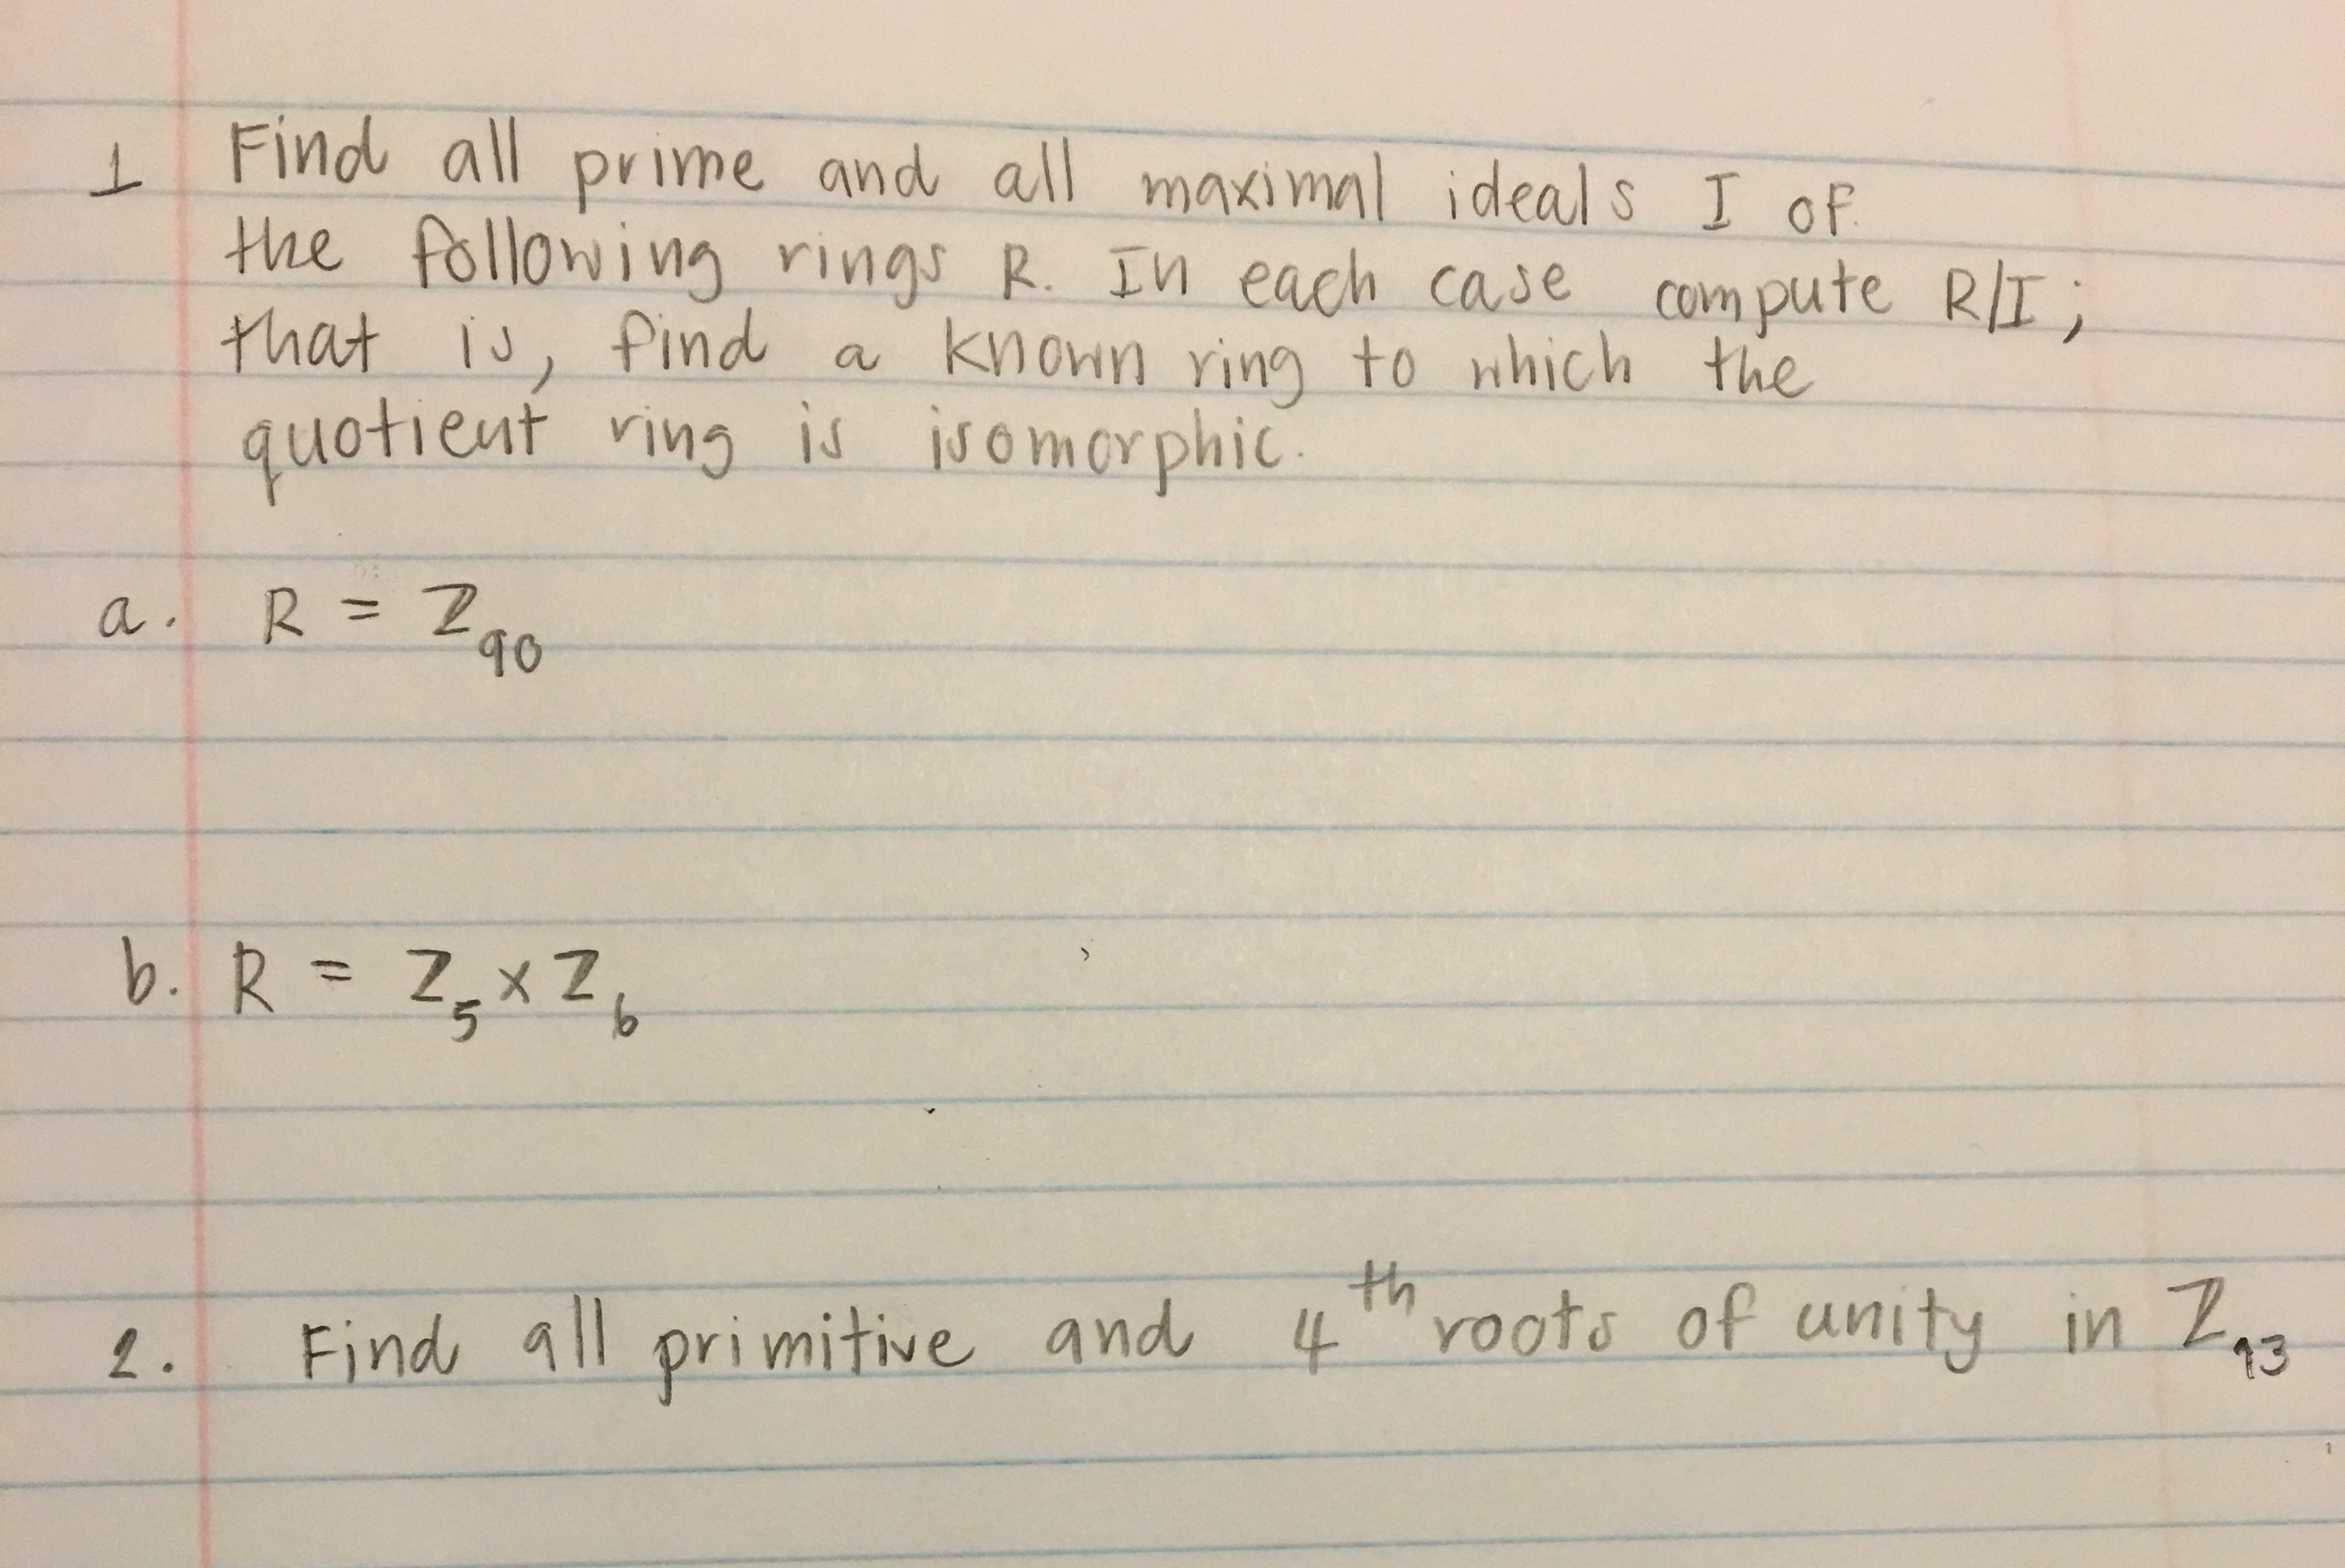 1 Find all prime and all maximal ideals I of
the following rings R. In each case compute R/I;
that is, find a known ring to which the
quotient ring is isomorphic.
a. R = Z₉₀
b. R = Z₅ × Z₆
2. Find all primitive and 4ᵗʰ roots of unity in Z₁₃